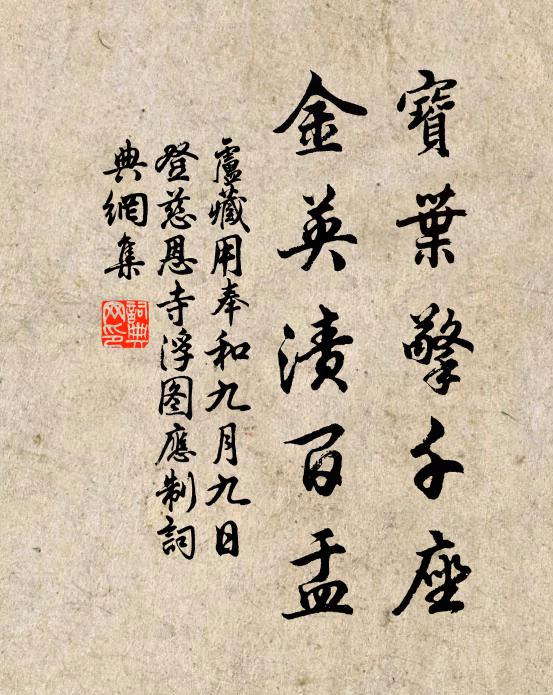 寶葉擎千座
金英漬百盂
盧藏用奉和九月九日
登慈恩寺浮图應制詞
典網集
詞典网印